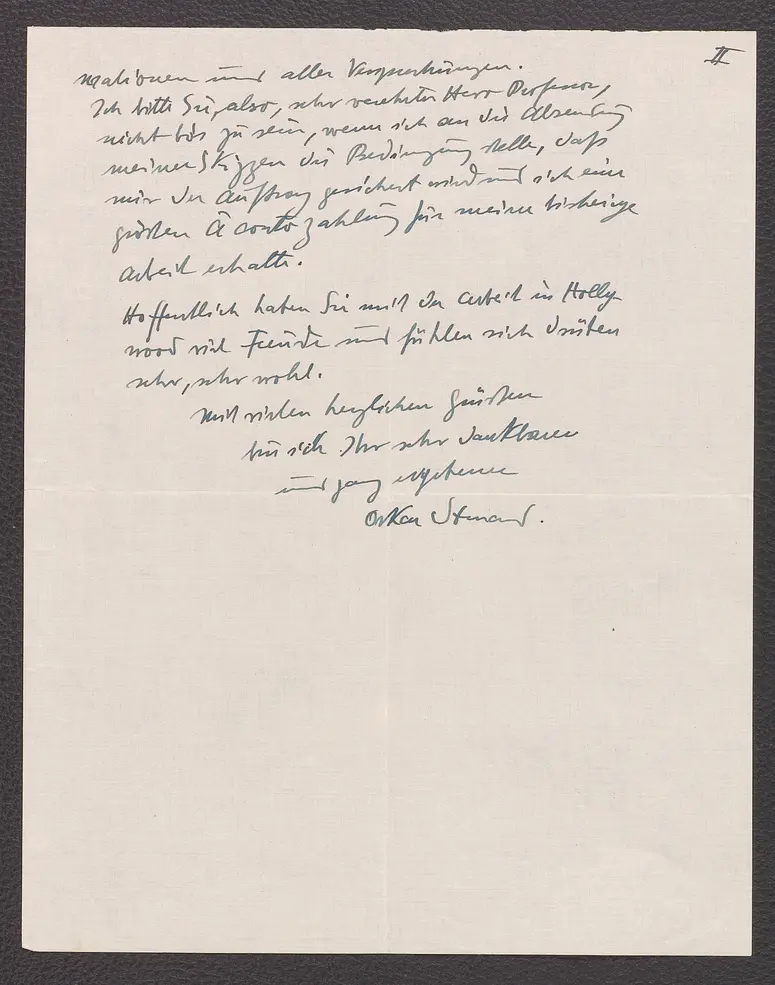 II
mationen und aller Versprechungen.
Ich bitte Sie, also, sehr verehrter Herr Professor,
nicht bös zu sein, wenn ich an die Absendung
meiner Skizzen die Bedingung stelle, daß
mir der Auftrag gesichert wird und ich eine
größere Àcontozahlung für meine bisherige
Arbeit erhalte.
Hoffentlich haben Sie mit der Arbeit in Holly-
wood viel Freude und fühlen sich drüben
sehr, sehr wohl.
Mit vielen herzlichen Grüßen
bin ich Ihr sehr dankbarer
und ganz ergebener
Oskar Strnad.